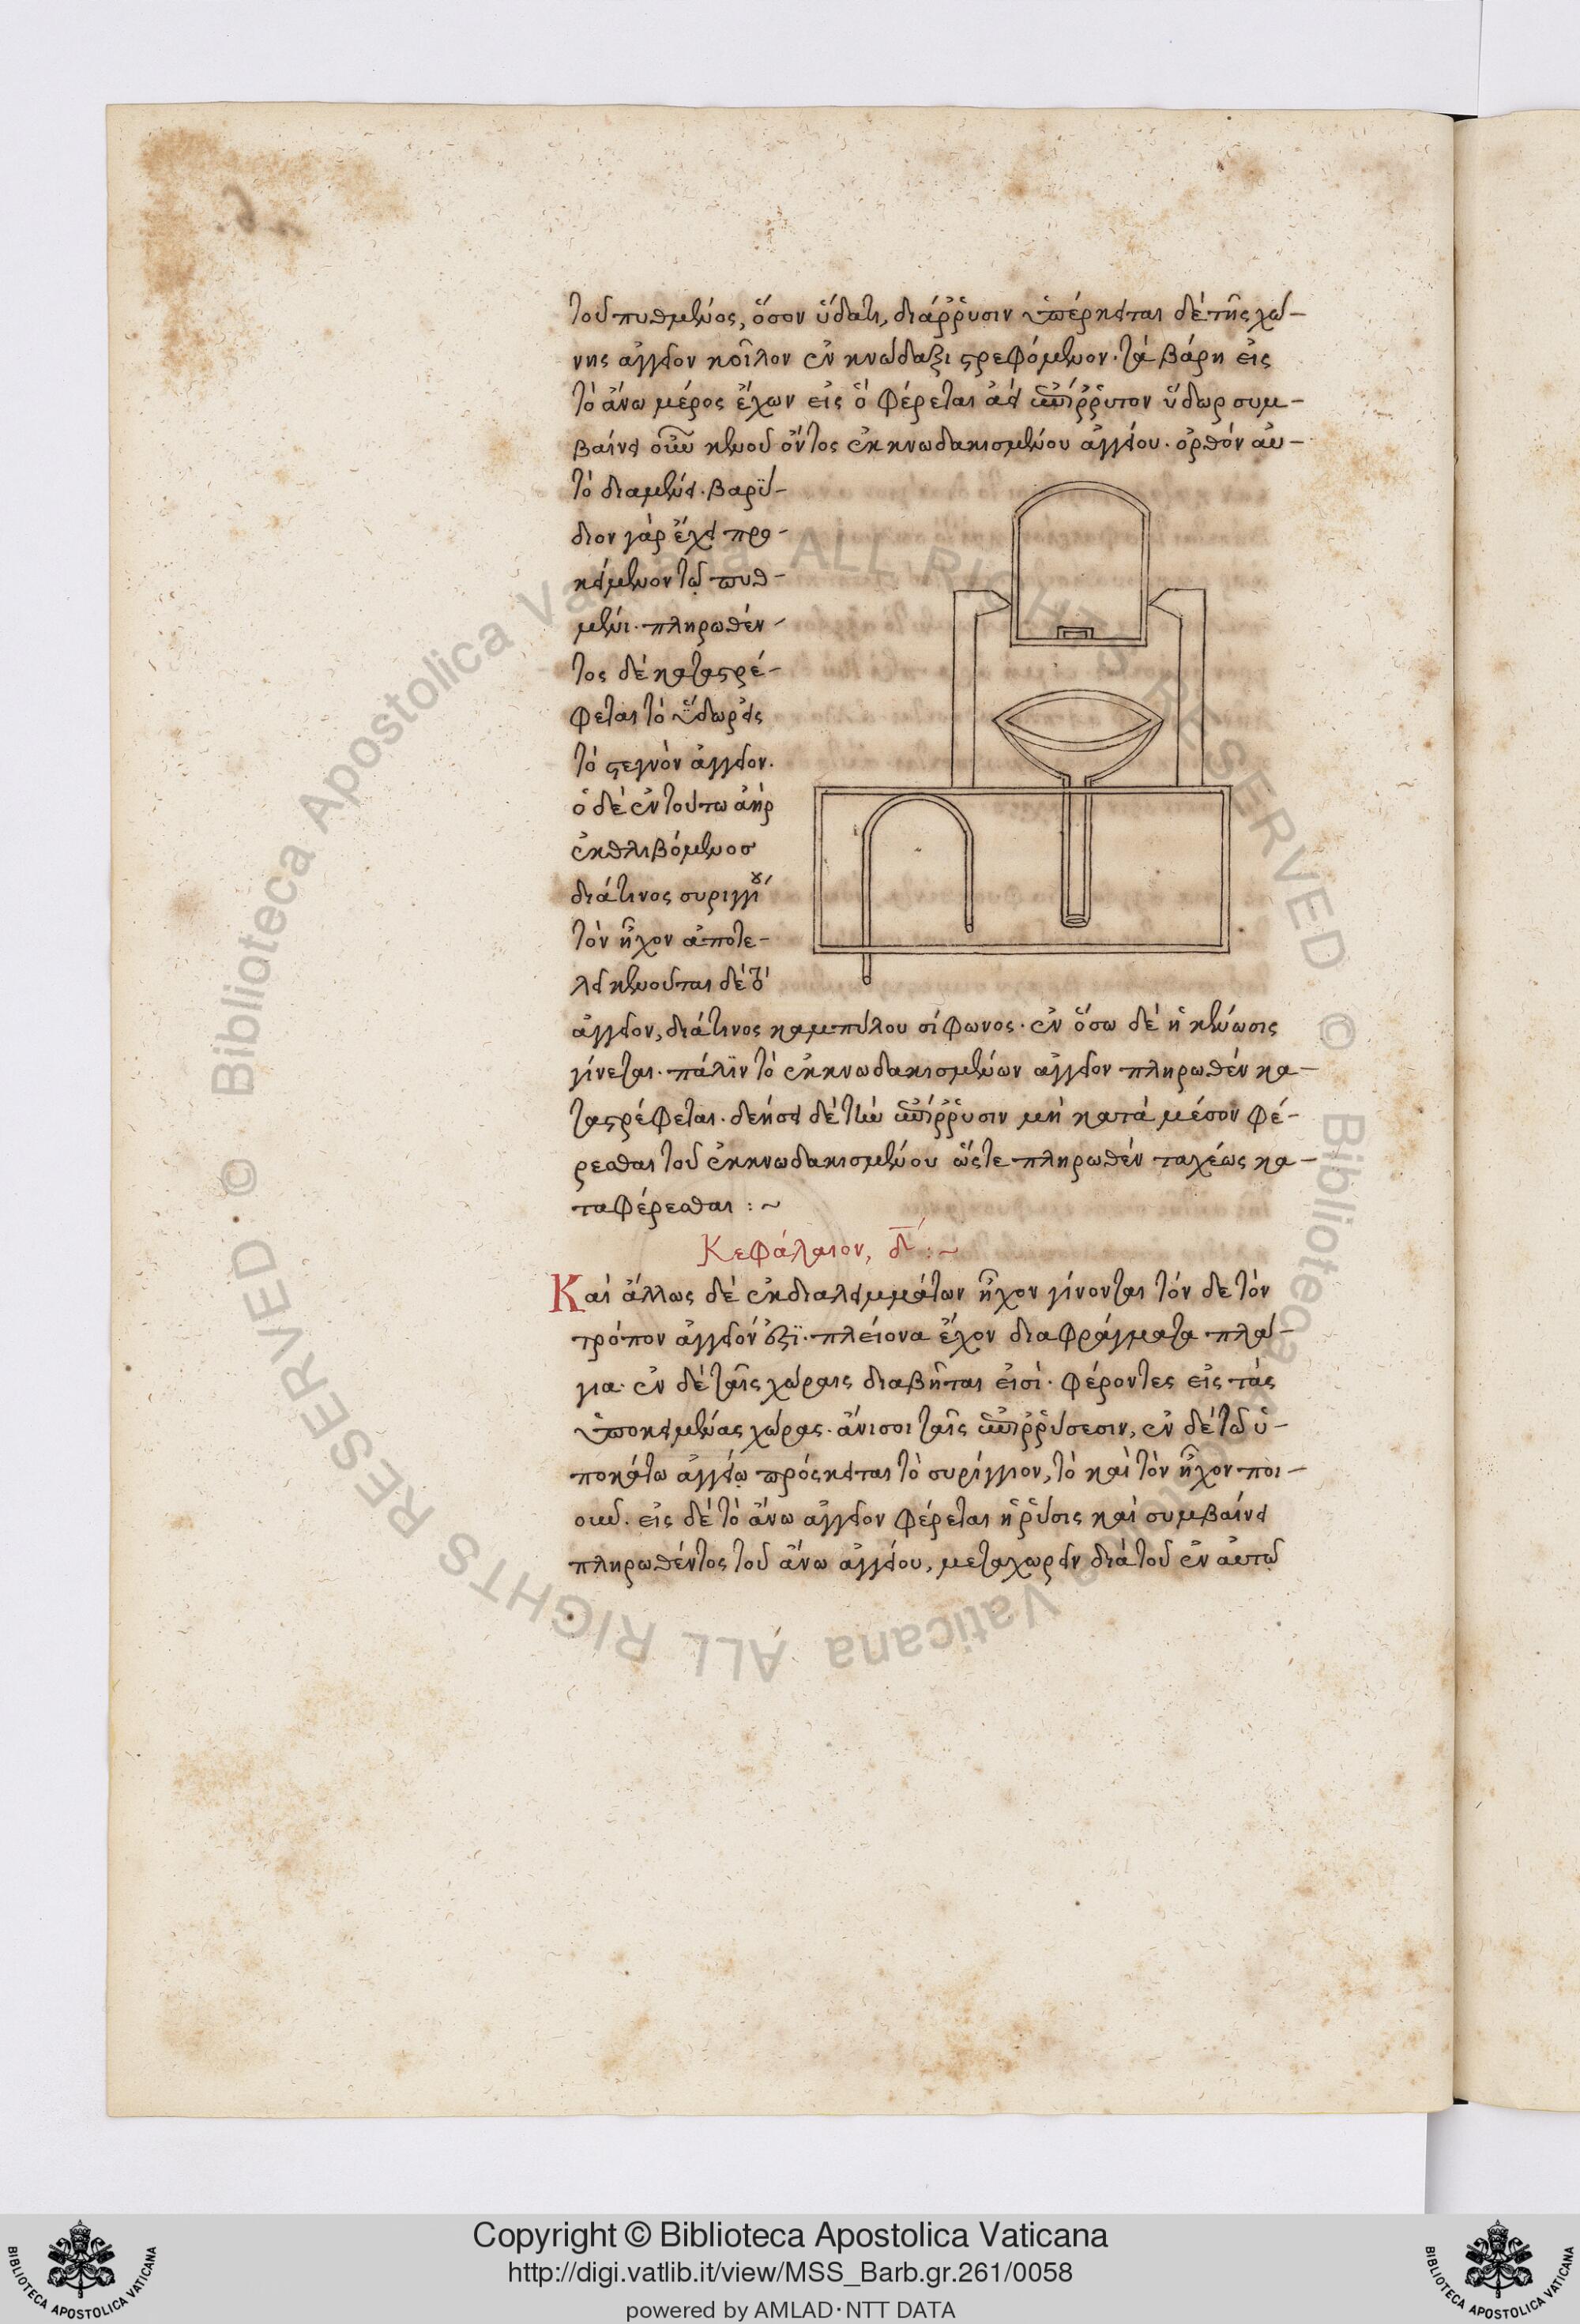 τοῦ πυθμένος, ὅσον ὕδατι, διάρρυσιν ὑπέρκειται δὲ τῆς χώ-
νης ἀγγεῖον κοῖλον ἐν κνώδαξι στρεφόμενον. τὰ βάρη εἰς
τὸ ἄνω μέρος ἔχων εἰς ὃ φέρεται ἀεὶ ἐπίρρυτον ὕδωρ συμ-
βαίνει οὖν κενοῦ ὄντος ἐκκνωδακισμένου ἀγγείου. ὀρθὸν αὐ-
τὸ διαμένει. βαρύ-
διον γὰρ ἔχει προ-
κείμενον τῷ πυθ-
μένι. πληρωθέν-
τος δὲ καταστρέ-
φεται τὸ ὕδωρ εἰς
τὸ στεγνὸν ἀγγεῖον.
ὁ δὲ ἐν τούτω ἀὴρ
ἐκθλιβόμενος
διά τινος συριγγίου
τὸν ἦχον ἀποτε-
λεῖ κενοῦται δὲ τὸ
ἀγγεῖον, διά τινος καμπύλου σίφωνος. ἐν ὅσω δὲ ἡ κένωσις
γίνεται. πάλϊν τὸ ἐκκνωδακισμένων ἀγγεῖον πληρωθὲν κα-
ταστρέφεται. δεήσει δὲ τὴν ἐπίρρυσιν μὴ κατὰ μέσον φέ-
ρεσθαι τοῦ ἐκκνωδακισμένου ὥστε πληρωθὲν ταχέως κα-
ταφέρεσθαι :~
Κεφάλαιον, δ :~
Καὶ ἄλλως δὲ ἐκ διαλειμμάτων ἦχον γίνονται τόν δε τὸν
τρόπον ἀγγεῖόν ἐστϊ. πλείονα ἔχον διαφράγματα πλά-
για. ἐν δὲ ταῖς χώραις διαβῆται εἰσὶ. φέροντες εἰς τὰς
ὑποκειμένας χώρας. ἄνισοι ταῖς ἐπιρρύσεσιν, ἐν δὲ τῶ ὑ-
ποκάτω ἀγγείῳ πρόςκειται τὸ συρίγγιον, τὸ καὶ τὸν ἦχον ποι-
οῦν. εἰς δὲ τὸ ἄνω ἀγγεῖον φέρεται ἡ ῥύσις καὶ συμβαίνει
πληρωθέντος τοῦ ἄνω ἀγγείου, μεταχωρεῖν διὰ τοῦ ἐν αὐτῶ
Copyright © Biblioteca Apostolica Vaticana
http://digi.vatlib.it/view/MSS_Barb.gr.261/0058
powered by AMLAD·NTT DATA
© Biblioteca Apostolica Vaticana ALL RIGHTS RESERVED
© Biblioteca Apostolica Vaticana ALL RIGHTS RESERVED
BIBLIOTECA APOSTOLICA VATICANA
BIBLIOTECA APOSTOLICA VATICANA